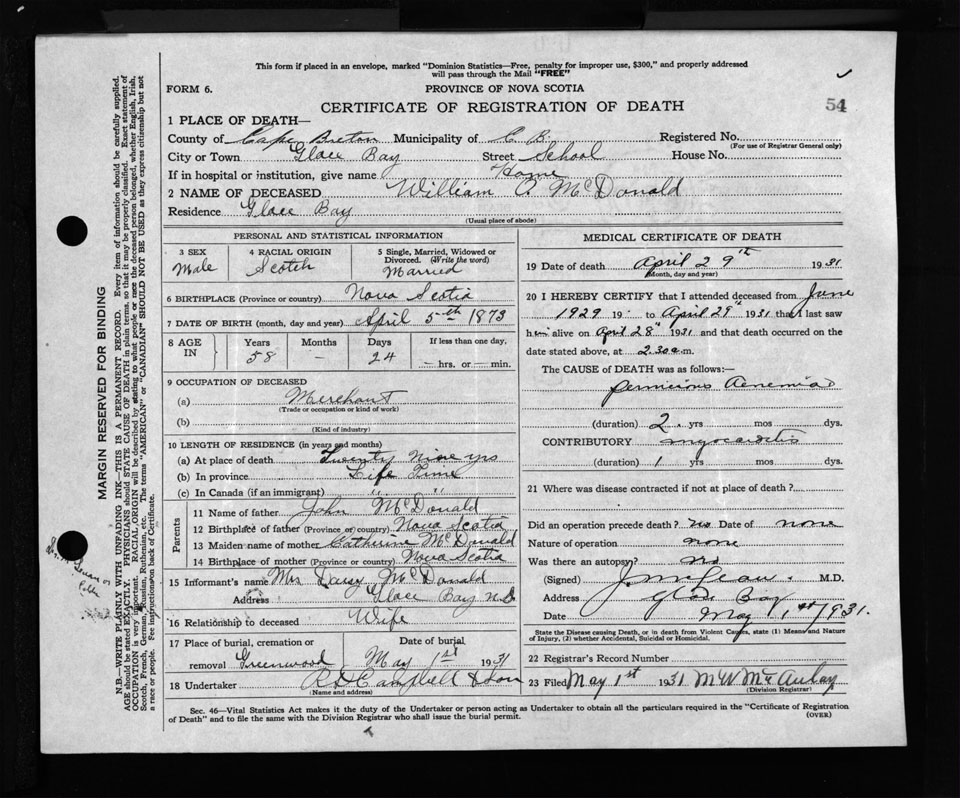 This form if placed in an envelope, marked "Dominion Statistics—Free, penalty for improper use, $300," and properly addressed
will pass through the Mail "FREE"
FORM 6.
PROVINCE OF NOVA SCOTIA
CERTIFICATE OF REGISTRATION OF DEATH
54
1 PLACE OF DEATH—
County of Cape Breton Municipality of C B. Registered No.
(For use of Registrar General only)
City or Town Glace Bay Street School House No.
If in hospital or institution, give name Home
2 NAME OF DECEASED William A McDonald
Residence Glace Bay
(Usual place of abode)
PERSONAL AND STATISTICAL INFORMATION
3 SEX
Male
4 RACIAL ORIGIN
Scotch
5 Single, Married, Widowed or
Divorced. (Write the word)
Married
6 BIRTHPLACE (Province or country) Nova Scotia
7 DATE OF BIRTH (month, day and year) April 5th 1873
8 AGE IN
Years
58
Months
-
Days
24
If less than one day,
hrs. or min.
9 OCCUPATION OF DECEASED
(a) Merchant
(Trade or occupation or kind of work)
(b)
(Kind of industry)
10 LENGTH OF RESIDENCE (in years and months)
(a) At place of death Twenty Nine yrs
(b) In province Life Time
(c) In Canada (if an immigrant) " "
Parents
11 Name of father John McDonald
12 Birthplace of father (Province or country) Nova Scotia
13 Maiden name of mother Catherine McDonald
14 Birthplace of mother (Province or country) Nova Scotia
15 Informant's name Mrs McDonald
Address Glace Bay N.S
16 Relationship to deceased Wife
17 Place of burial, cremation or
removal Greenwood
Date of burial
May 1st 1931
18 Undertaker Campbell & Son
(Name and address)
MEDICAL CERTIFICATE OF DEATH
19 Date of death April 29th 1931
(Month, day and year)
20 I HEREBY CERTIFY that I attended deceased from June
1929 19 to April 29th 1931 that I last saw
him alive on April 28th 1931 and that death occurred on the
date stated above, at 2.30 a.m.
The CAUSE of DEATH was as follows:—
pernicious
(duration) 2 yrs mos dys.
CONTRIBUTORY myocarditis
(duration) 1 yrs mos dys
21 Where was disease contracted if not at place of death?
Did an operation precede death? no Date of none
Nature of operation none
Was there an autopsy? no
(Signed) M.D.
Address Glace Bay
Date May 1st 1931.
State the Disease causing Death, or in death from Violent Causes, state (1) Means and Nature
of Injury, (2) whether Accidental, Suicidal or Homicidal.
22 Registrar's Record Number
23 Filed May 1st 1931 M W McAulay
(Division Registrar)
Sec. 46—Vital Statistics Act makes it the duty of the Undertaker or person acting as Undertaker to obtain all the particulars required in the "Certificate of Registration
of Death" and to file the same with the Division Registrar who shall issue the burial permit.
(OVER)
MARGIN RESERVED FOR BINDING
N.B.—WRITE PLAINLY WITH UNFADING INK—THIS IS A PERMANENT RECORD. Every item of information should be carefully supplied.
AGE should be stated EXACTLY. PHYSICIANS should STATE CAUSE OF DEATH in plain terms, so that it may be properly classified. Exact statement of
OCCUPATION is very important. RACIAL ORIGIN will be described by stating to what people or race the deceased person belonged, whether English, Irish,
Scotch, French, German, Russian, Ruthenian, etc. The terms "AMERICAN" or "CANADIAN" SHOULD NOT BE USED as they express citizenship but not
a race or people. See instructions on back of Certificate.